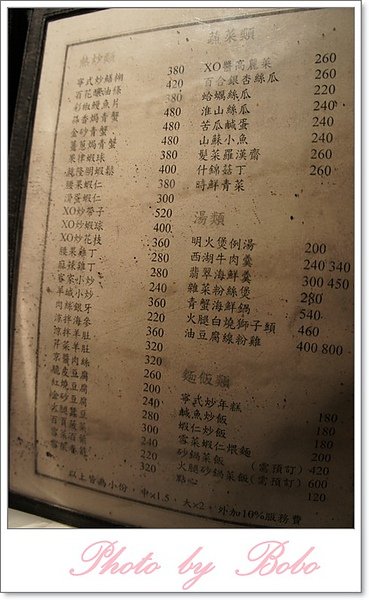 熱炒類
寧式炒鱔糊 380
百花釀油條 420
彩椒鰻魚片 380
蒜香焗青蟹 480
金砂青蟹 480
薑蔥焗青蟹 480
果律蝦球 380
龍蝦鬆 400
腰果蝦仁 380
滑蛋蝦仁 300
XO炒帶子 520
XO炒蝦球 400
XO炒花枝 360
腰果雞丁 280
麻辣雞丁 280
客家小炒 240
鹹小炒 240
肉絲銀牙 360
涼拌海參 220
涼拌羊肚 320
芹菜羊肚 320
京醬肉絲 260
脆皮豆腐 200
紅燒豆腐 240
金砂豆腐 280
火腿蠶豆 300
百頁 240
雪菜百頁 220
320
以上皆為小份，中×1.5、大×2，外加10%服務費
蔬菜類
XO醬高麗菜 260
百合銀杏絲瓜 260
蛤蠣絲瓜 220
淮山絲瓜 240
苦瓜鹹蛋 240
山蘇小魚 240
髮菜羅漢齋 260
什錦菇丁 260
時鮮青菜
湯類
明火煲例湯 200
西湖牛肉羹 240 340
翡翠海鮮羹 300 450
雜菜粉絲煲 280
青蟹海鮮鍋 540
火腿白燒獅子頭 460
油豆腐線粉雞 400 800
麵飯類
寧式炒年糕 180
鹹魚炒飯 180
蝦仁炒飯 180
雪菜蝦仁煨麵 200
砂鍋菜飯 (需預訂) 420
火腿砂鍋菜飯 (需預訂) 600
點心 120
Photo by Bobo